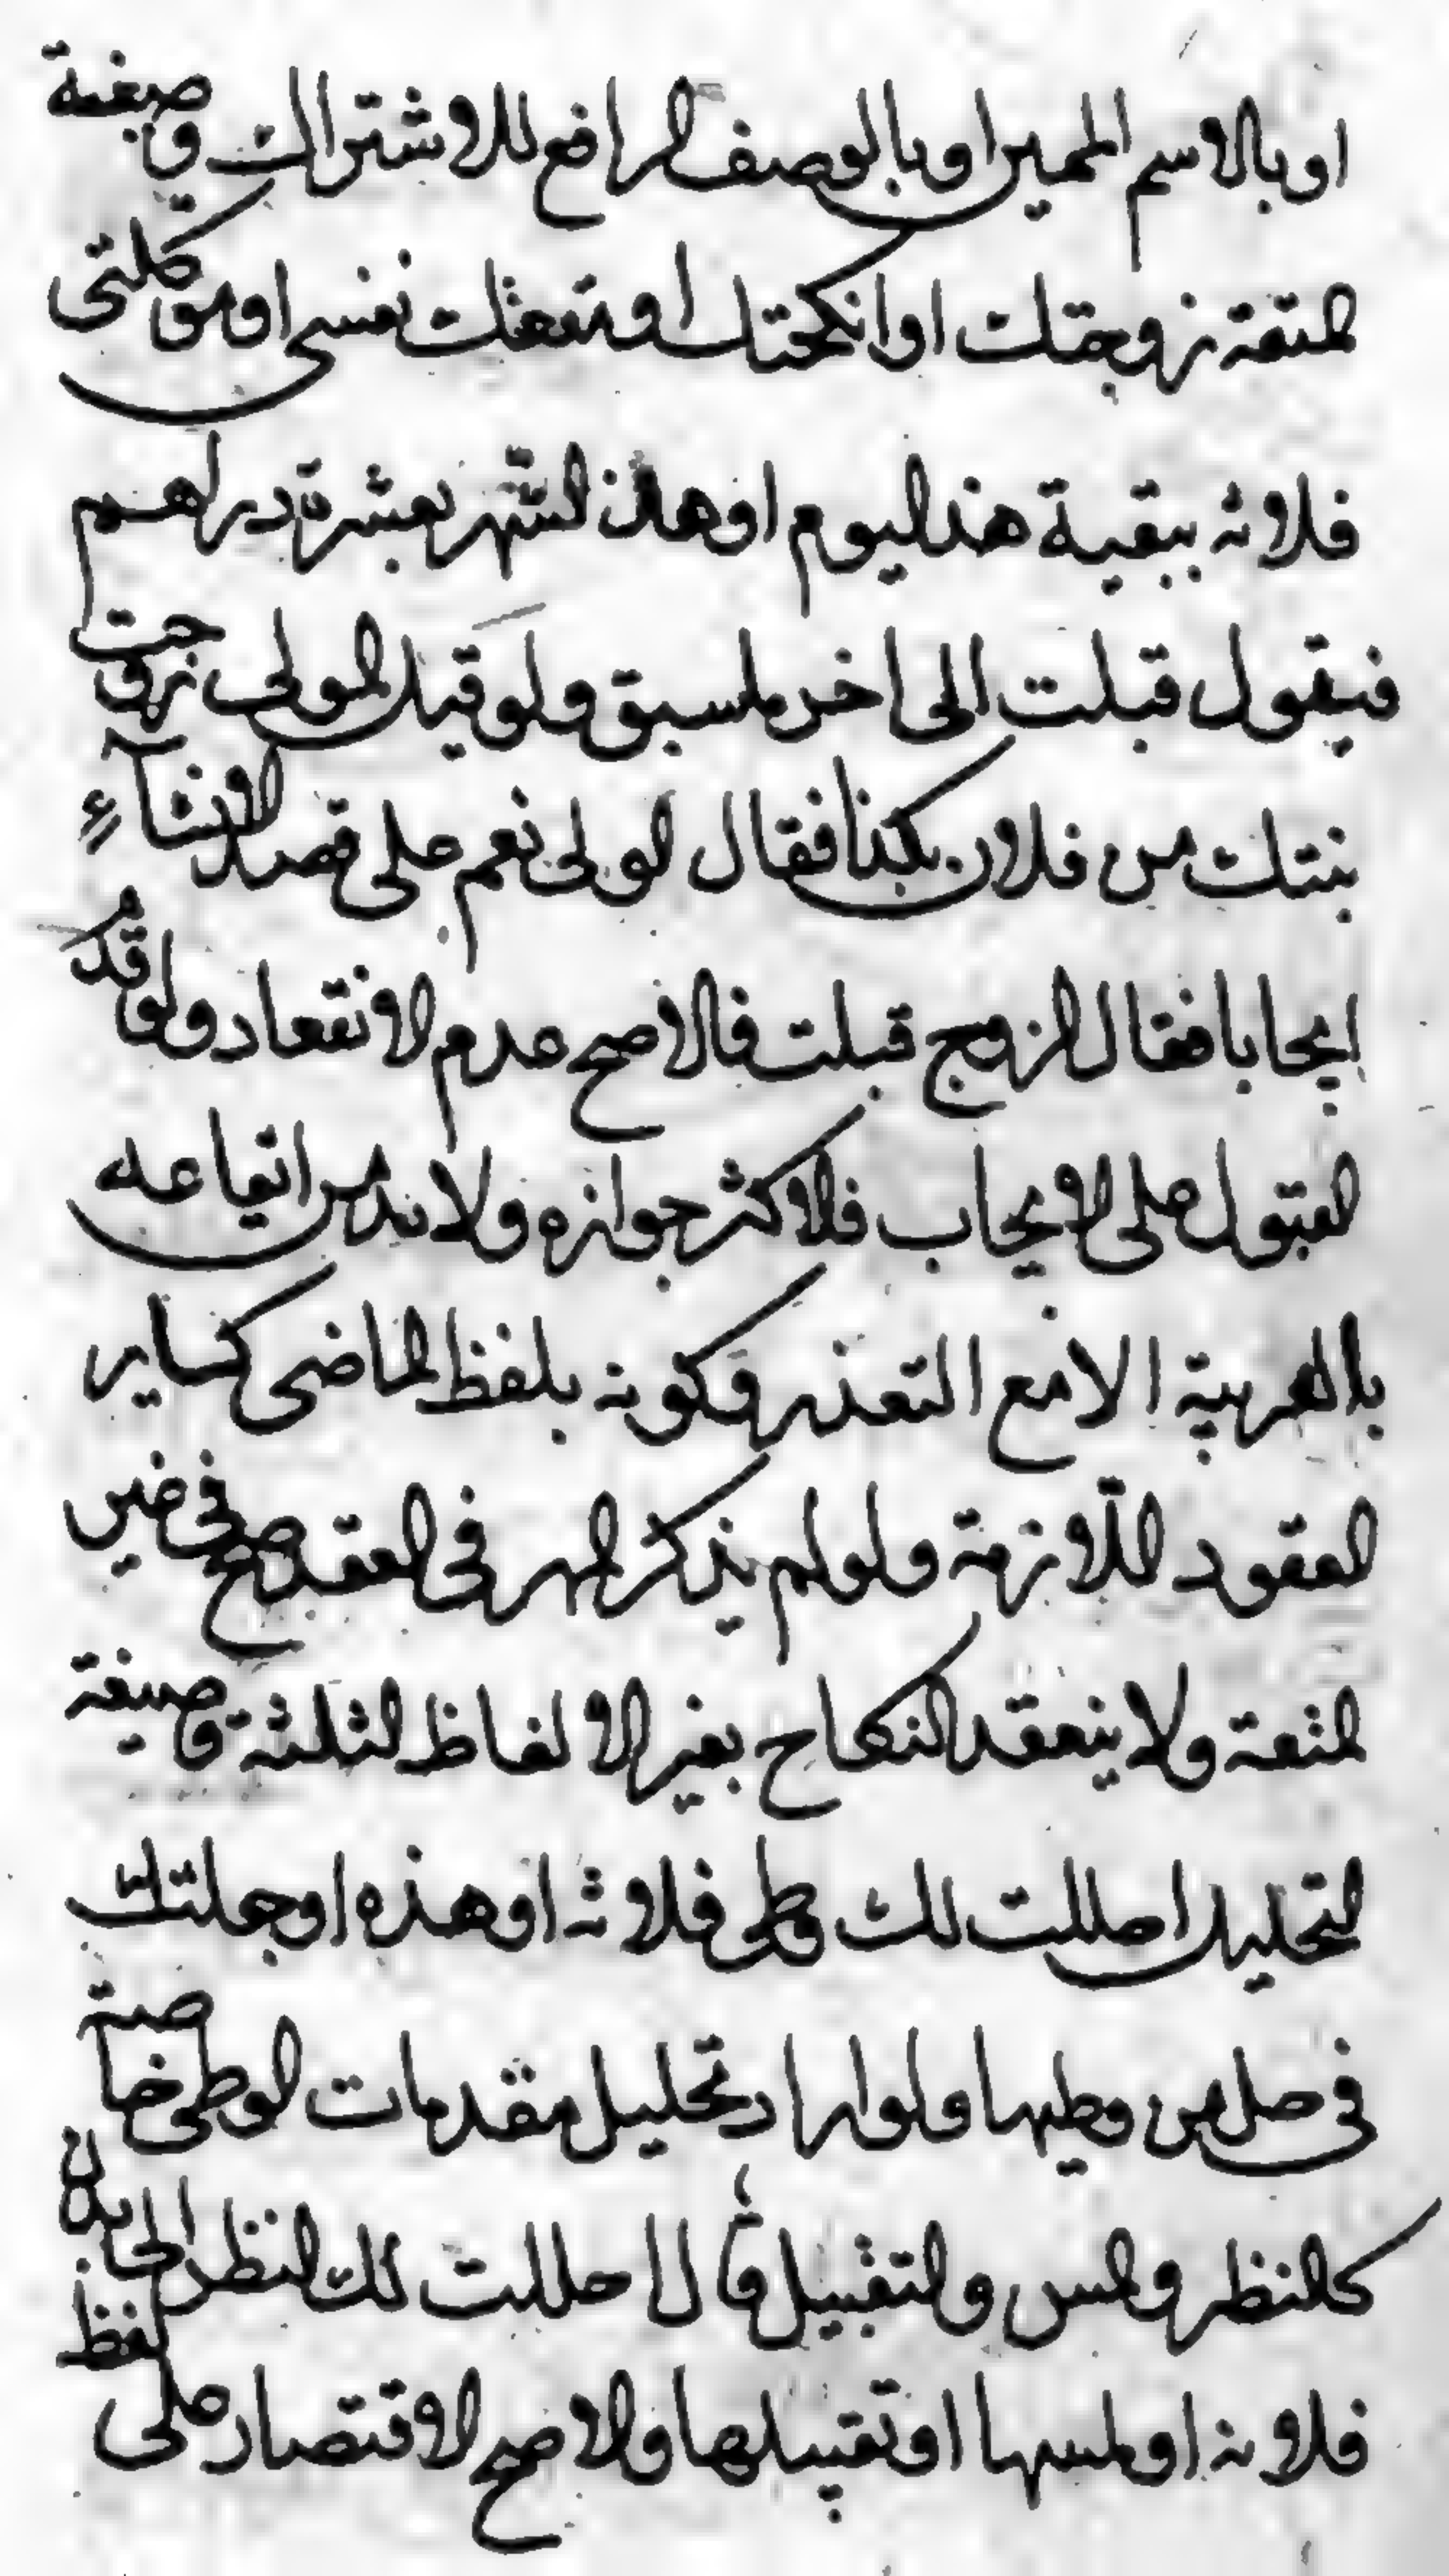 او بالاسم المميز او بالوصف الرافع للاشتراك وصيغة
المتعة زوجتك او انكحتك او متعتك نفسى او موكلتى
فلانة ببقية هذا اليوم او هذا الشّهر بعشرة دراهم
فيقول قبلت الى اخر ما سبق ولو قيل للمولى زوجت
بنتك من فلان بكذا فقال الولى نعم على قصد الانشآء
ايجابا فقال الزوج قبلت فالاصح عدم الانعقاد ولو قدم
القبول على الايجاب فالاكثر جوازه ولا بد من ايقاعه
بالعربية الا مع التعذر وكونه بلفظ الماضى كساير
العقود اللّازمة ولو لم يذكر المهر فى العقد صح فى غير
المتعة ولا ينعقد النكاح بغير الالفاظ الثلثة وصيغة
التحليل احللت لك وطى فلانة او هذه او جعلتك
فى حل من وطيها ولو اراد تحليل مقدمات الوطى خاصة
كالنظر والمس والتقبيل قال احللت لك النظر الى بدن
فلانة او لمسها او تقبيلها والاصح الاقتصار على لفظ